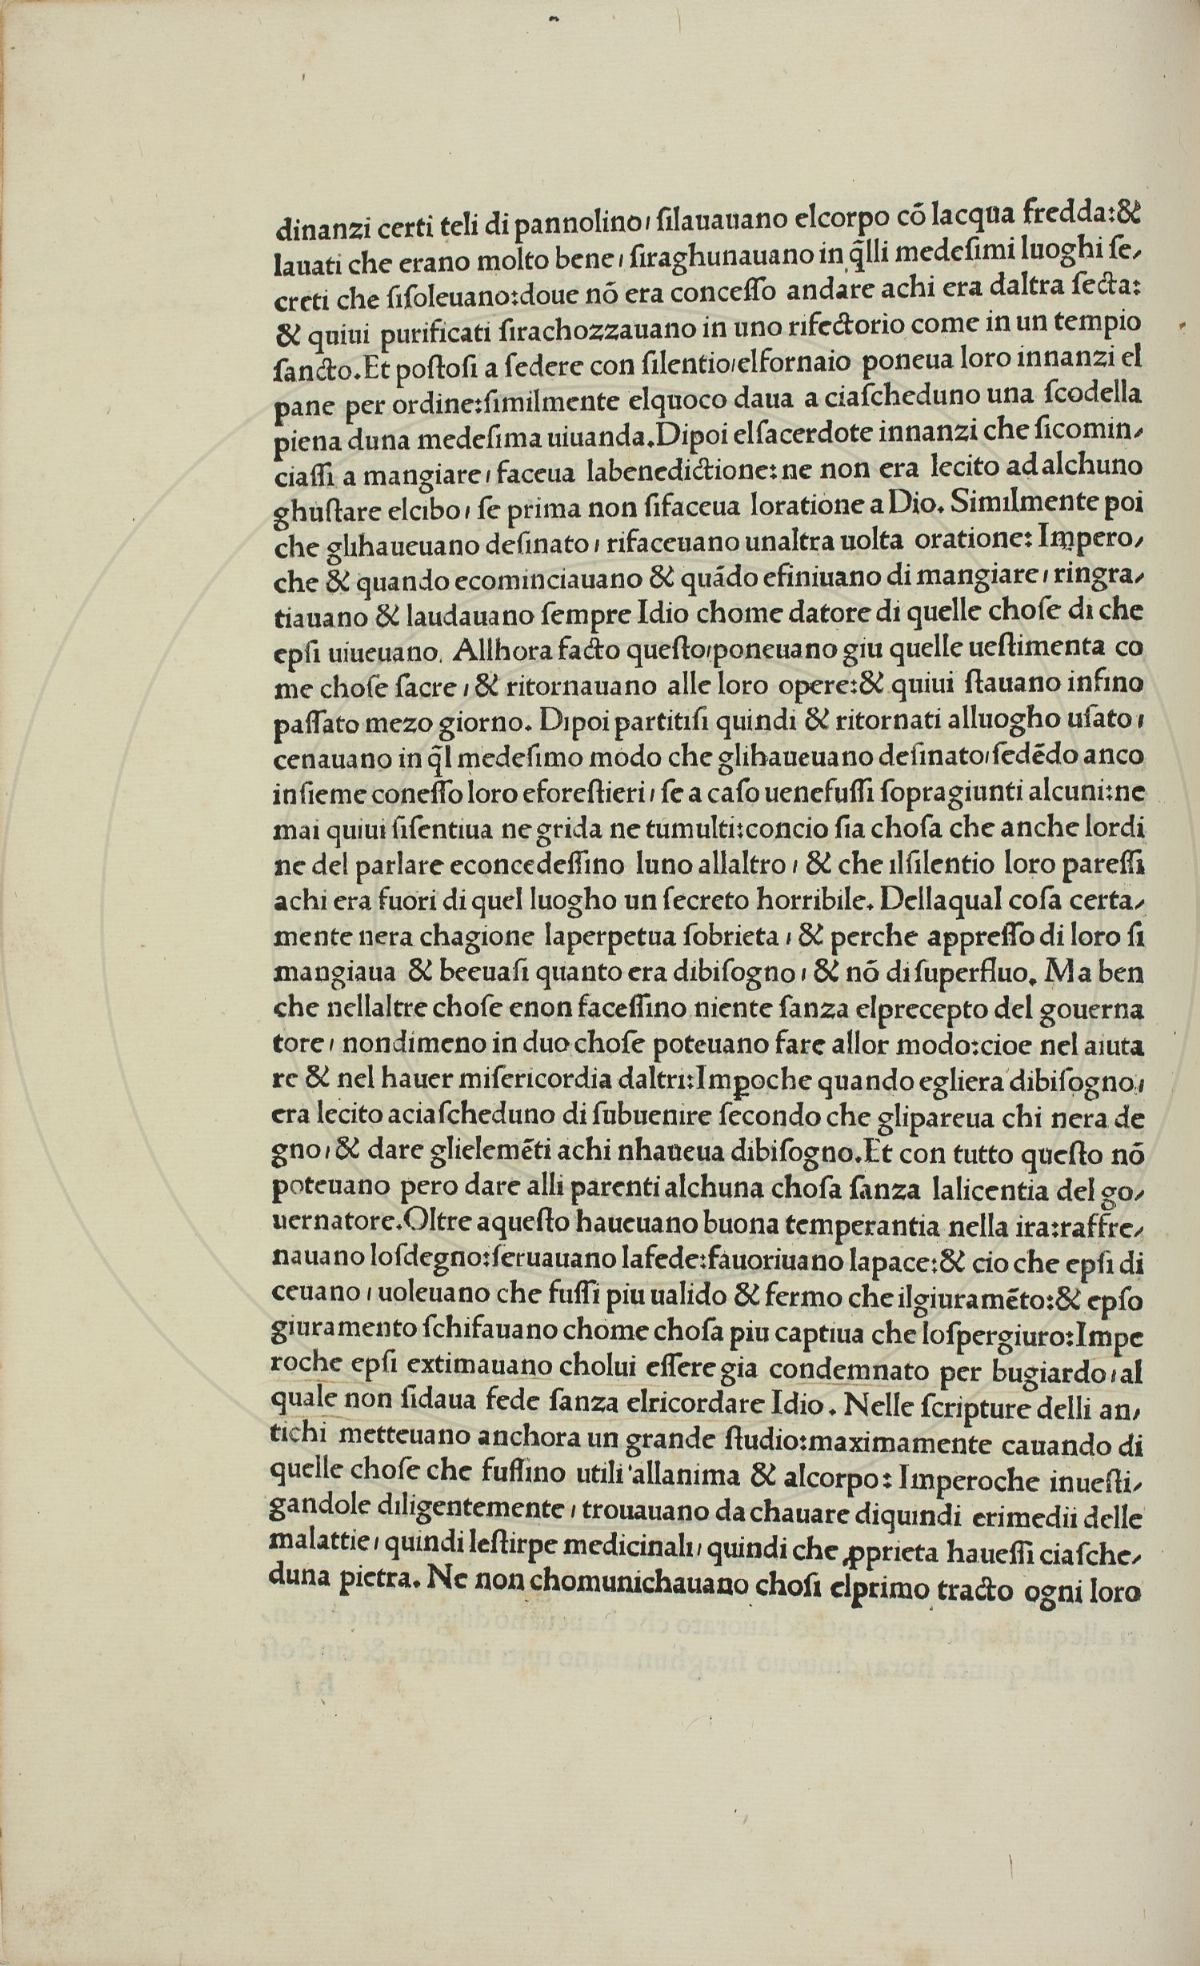 dinanzi certi teli di pannolino, ſilauauano elcorpo cō lacqua fredda:&
lauati che erano molto bene, ſiraghunauano in q̃lli medeſimi luoghi ſe,
creti che ſiſoleuano:doue nō era conceſſo andare achi era daltra ſecta:
& quiui purificati ſirachozzauano in uno rifectorio come in un tempio
ſancto. Et poſtoſi a ſedere con ſilentio,elfornaio poneua loro innanzi el
pane per ordine:ſimilmente elquoco daua a ciaſcheduno una ſcodella
piena duna medeſima uiuanda. Dipoi elſacerdote innanzi che ſicomin,
ciaſſi a mangiare, faceua labenedictione: ne non era lecito ad alchuno
ghuſtare elcibo, ſe prima non ſifaceua loratione a Dio. Similmente poi
che glihaueuano deſinato, rifaceuano unaltra uolta oratione: Impero,
che & quando ecominciauano & quādo efiniuano di mangiare, ringra,
tiauano & laudauano ſempre Idio chome datore di quelle choſe di che
epſi uiueuano. Allhora facto queſto,poneuano giu quelle ueſtimenta co
me choſe ſacre, & ritornauano alle loro opere:& quiui ſtauano infino
paſſato mezo giorno. Dipoi partitiſi quindi & ritornati alluogho uſato,
cenauano in q̃l medeſimo modo che glihaueuano deſinato,ſedēdo anco
inſieme coneſſo loro eforeſtieri, ſe a caſo uenefuſſi ſopragiunti alcuni:ne
mai quiui ſiſentiua ne grida ne tumulti:concio ſia choſa che anche lordi
ne del parlare econcedeſſino luno allaltro, & che ilſilentio loro pareſſi
achi era fuori di quel luogho un ſecreto horribile. Dellaqual coſa certa,
mente nera chagione laperpetua ſobrieta, & perche appreſſo di loro ſi
mangiaua & beeuaſi quanto era dibiſogno, & nō di ſuperfluo. Ma ben
che nellaltre choſe enon faceſſino niente ſanza elprecepto del gouerna
tore, nondimeno in duo choſe poteuano fare allor modo:cioe nel aiuta
re & nel hauer miſericordia daltri:Imꝑoche quando egliera dibiſogno,
era lecito aciaſcheduno di ſubuenire ſecondo che glipareua chi nera de
gno,& dare glielemēti achi nhaueua dibiſogno. Et con tutto queſto nō
poteuano pero dare alli parenti alchuna choſa ſanza lalicentia del go,
uernatore. Oltre aqueſto haueuano buona temperantia nella ira:raffre,
nauano loſdegno:ſeruauano lafede:fauoriuano lapace:& cio che epſi di
ceuano, uoleuano che fuſſi piu ualido & fermo che ilgiuramēto:& epſo
giuramento ſchifauano chome choſa piu captiua che loſpergiuro:Impe
roche epſi extimauano cholui eſſere gia condemnato per bugiardo,al
quale non ſidaua fede ſanza elricordare Idio. Nelle ſcripture delli an,
tichi metteuano anchora un grande ſtudio:maximamente cauando di
quelle choſe che fuſſino utili allanima & alcorpo: Imperoche inueſti,
gandole diligentemente, trouauano da chauare diquindi erimedii delle
malattie, quindi leſtirpe medicinali, quindi che ꝓprieta haueſſi ciaſche,
duna pietra. Ne non chomunichauano choſi elprimo tracto ogni loro